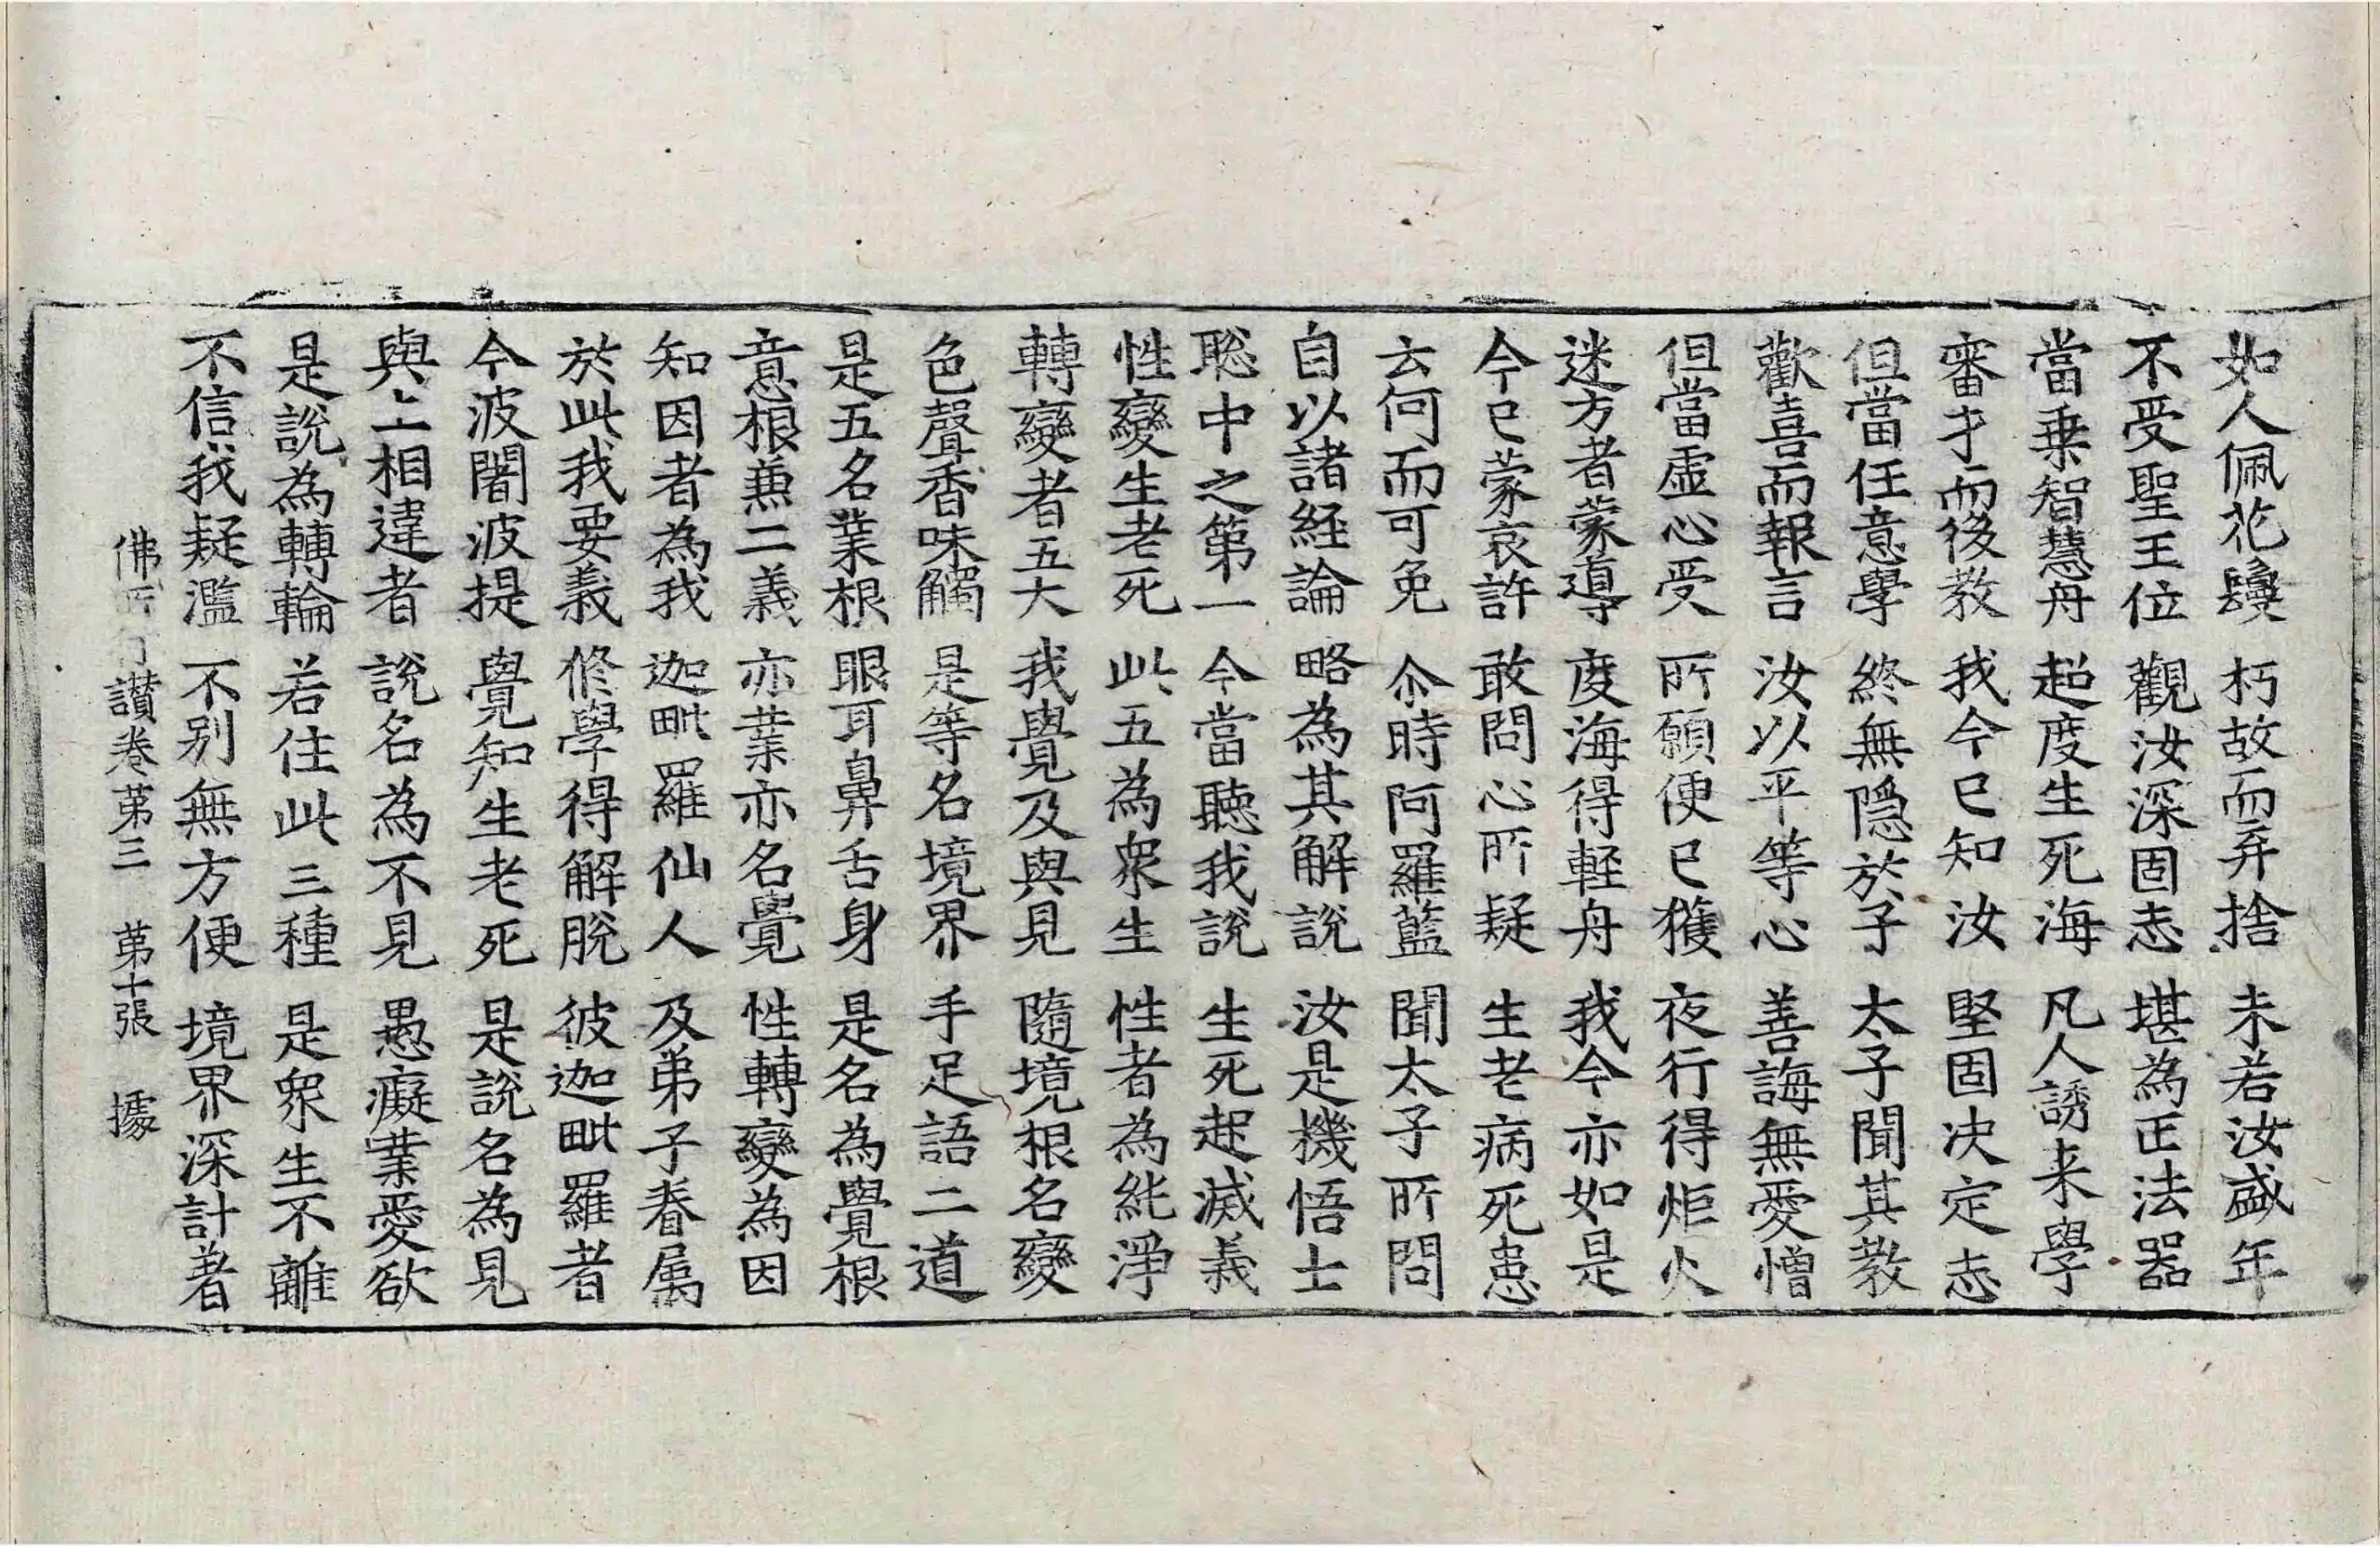 如人佩花鬘 朽故而弃捨 未若汝盛年
不受聖王位 觀汝深固志 堪為正法器
當乗智慧舟 超度生死海 凡人誘来學
審才而後教 我今已知汝 堅固决定志
但當任意學 終無隱於子 太子聞其教
歡喜而報言 汝以平等心 善誨無愛憎
但當虛心受 所願便已獲 夜行得炬火
迷方者蒙導 度海得軽舟 我今亦如是
今已蒙哀許 敢問心所疑 生老病死患
云何而可免 尒時阿羅藍 聞太子所問
自以諸経論 略為其解說 汝是機悟士
聡中之第一 今當聽我說 生死起滅義
性變生老死 此五為衆生 性者為純淨
轉變者五大 我覺及與見 隨境根名變
色聲香味觸 是等名境界 手足語二道
是五名業根 眼耳鼻舌身 是名為覺根
意根兼二義 亦業亦名覺 性轉變為因
知因者為我 迦毗羅仙人 及弟子眷属
於此我要義 修學得解脫 彼迦毗羅者
今波闍波提 覺知生老死 是說名為見
與上相違者 說名為不見 愚癡業愛欲
是說為轉輪 若住此三種 是衆生不離
不信我疑濫 不別無方便 境界深計著
佛所行讃卷第三 第十張 據